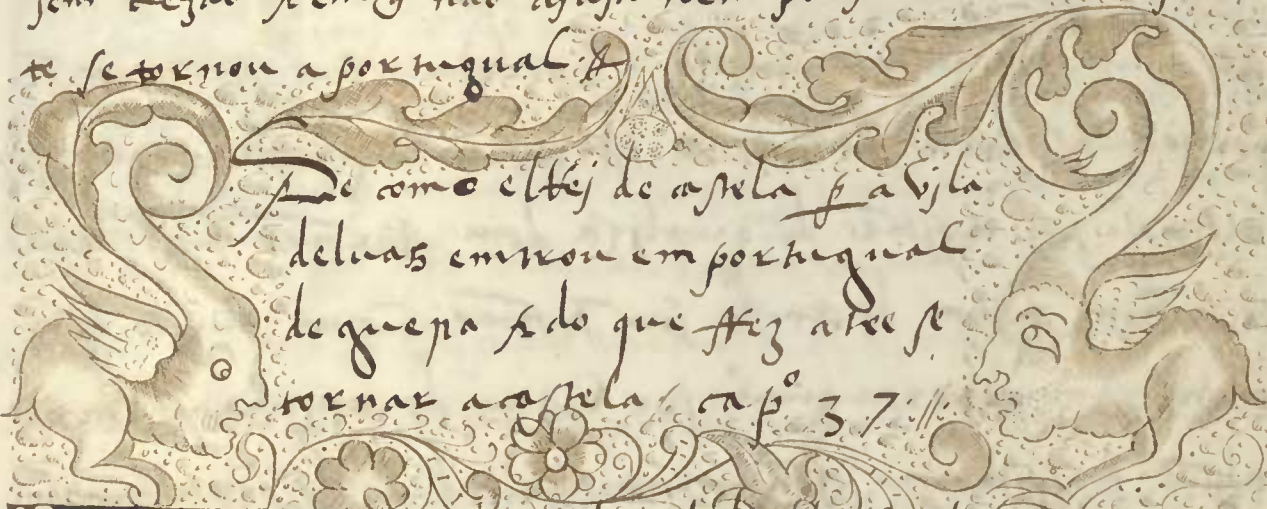 te se tornou a portugual &
De como elRej de castela p a vjla
deluas emtrou em portugual
de guerra & do que ffez atee se
tornar a castela / cap.º 37 //